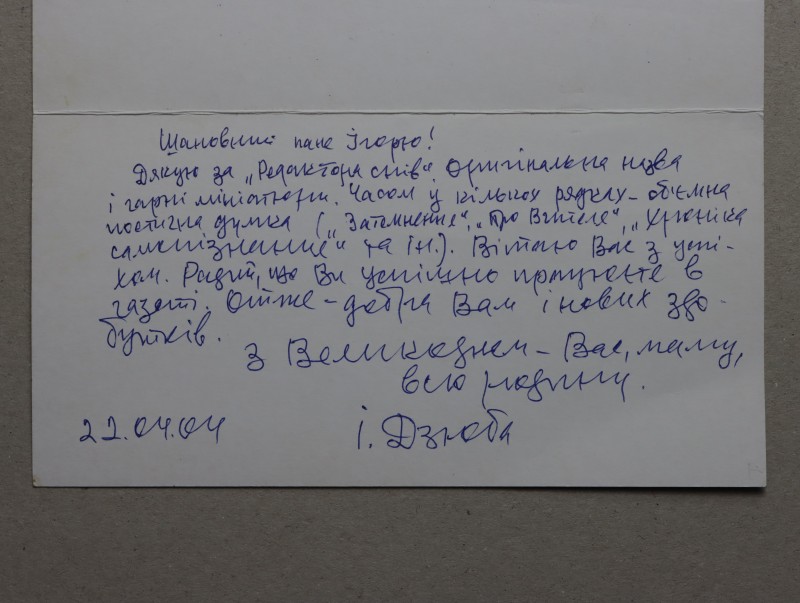 Шановний пане Ігорю!
Дякую за „Редактора снів“. Оригінальна назва
і гарні мініатюри. Часом у кількох рядках – об'ємна
поетична думка („Затемнення“, „Про Вчителя“, „Хроніка
самопізнання“ та ін.). Вітаю Вас з успі-
хом. Радий, що Ви успішно працюєте в
газеті. Отже – добра Вам і нових здо-
бутків.
З Великоднем – Вас, маму,
всю родину.
22.04.04 І. Дзюба